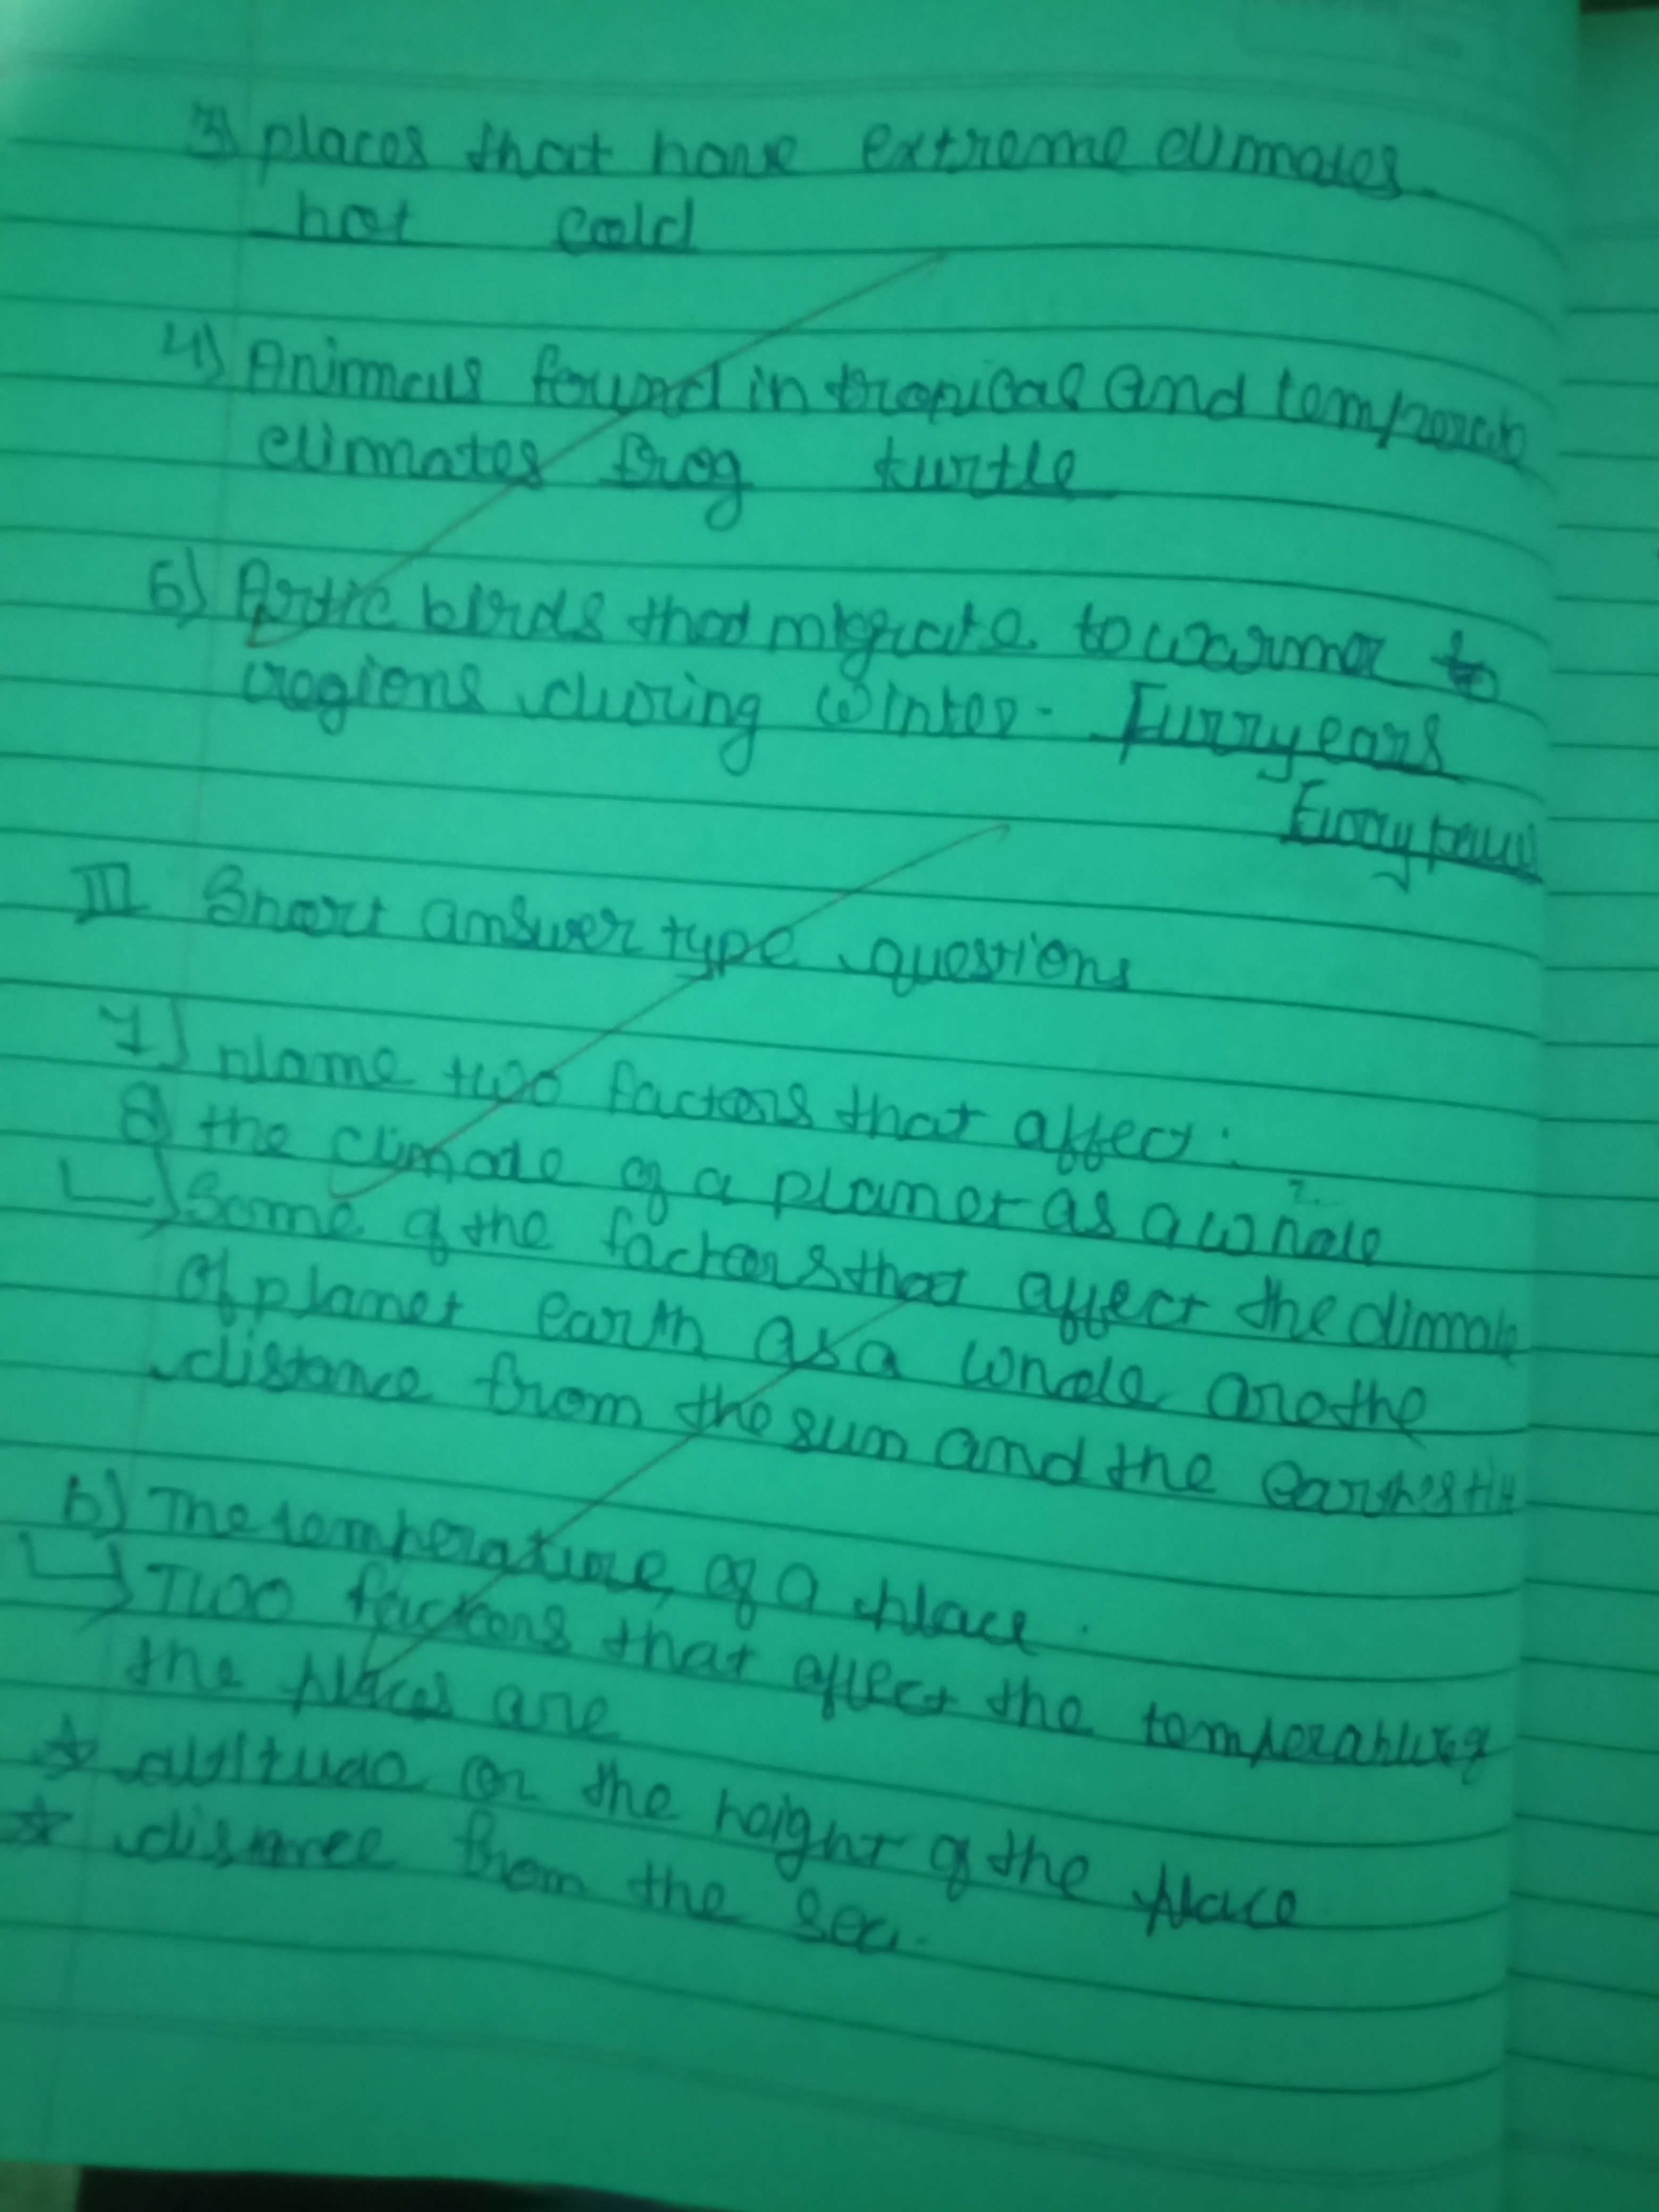 3) places that have extreme climates.
hot cold
4) Animals found in tropical and temperate
climates frog turtle
6) Artic birds that migrate to warmer to
regions during winter - Furryears
Furry paws
III Short answer type questions
7) Name two factors that affect :
a) the climate of a planet as a whole
Some of the factors that affect the climate
of planet earth as a whole are the
distance from the sun and the
b) The temperature of a place.
Two factors that affect the temperature of
the places are
☆ altitude or the height of the place
☆ distance from the sea.